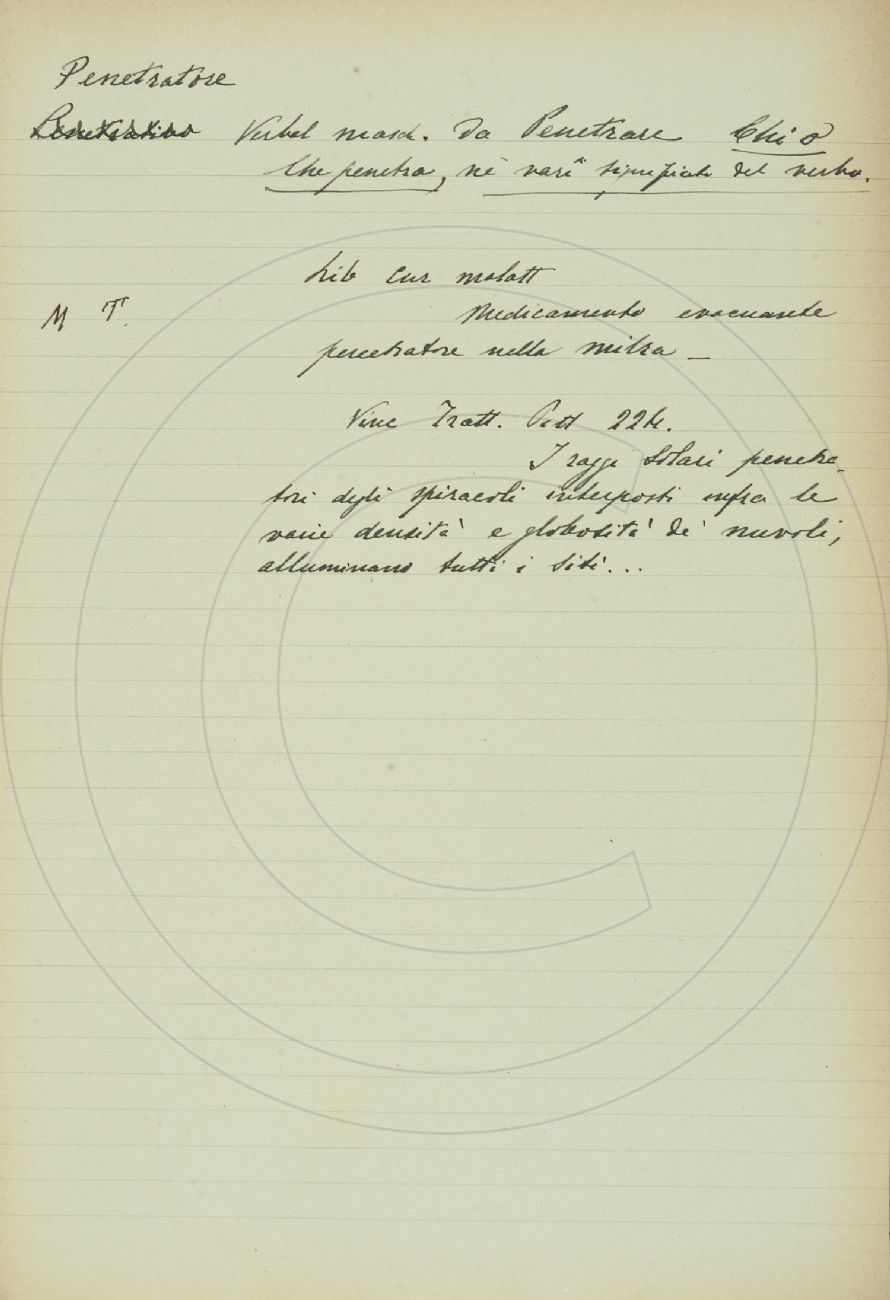 Penetratore
Penetrativo Verbal masch. Da Penetrare Chi o
Che penetra, nè varî significati del verbo.
Lib cur malatt
M T. Medicamento evacuante
penetratore nella milza _
Vinc Tratt. Pitt
I raggi solari penetra-
tori degli spiracoli interposti infra le
varie densità e globosità de' nuvoli,
alluminano tutti i siti...